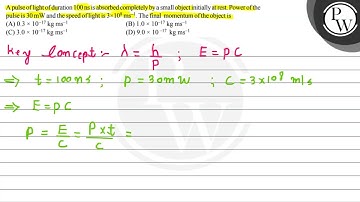 A pulse of light of duration 100 ns is absorbed completely by a small object initially at rest. Power of the
pulse is 30 mW and the speed of light is 3×10⁸ ms⁻¹. The final momentum of the object is
(A) 0.3 × 10⁻¹⁷ kg ms⁻¹ (B) 1.0 × 10⁻¹⁷ kg ms⁻¹
(C) 3.0 × 10⁻¹⁷ kg ms⁻¹ (D) 9.0 × 10⁻¹⁷ kg ms⁻¹
Key Concept :- λ = h/p ; E = PC
⇒ t = 100ns ; P = 30mW ; C = 3×10⁸ m/s
⇒ E = PC
P = E/C = P×t/C =